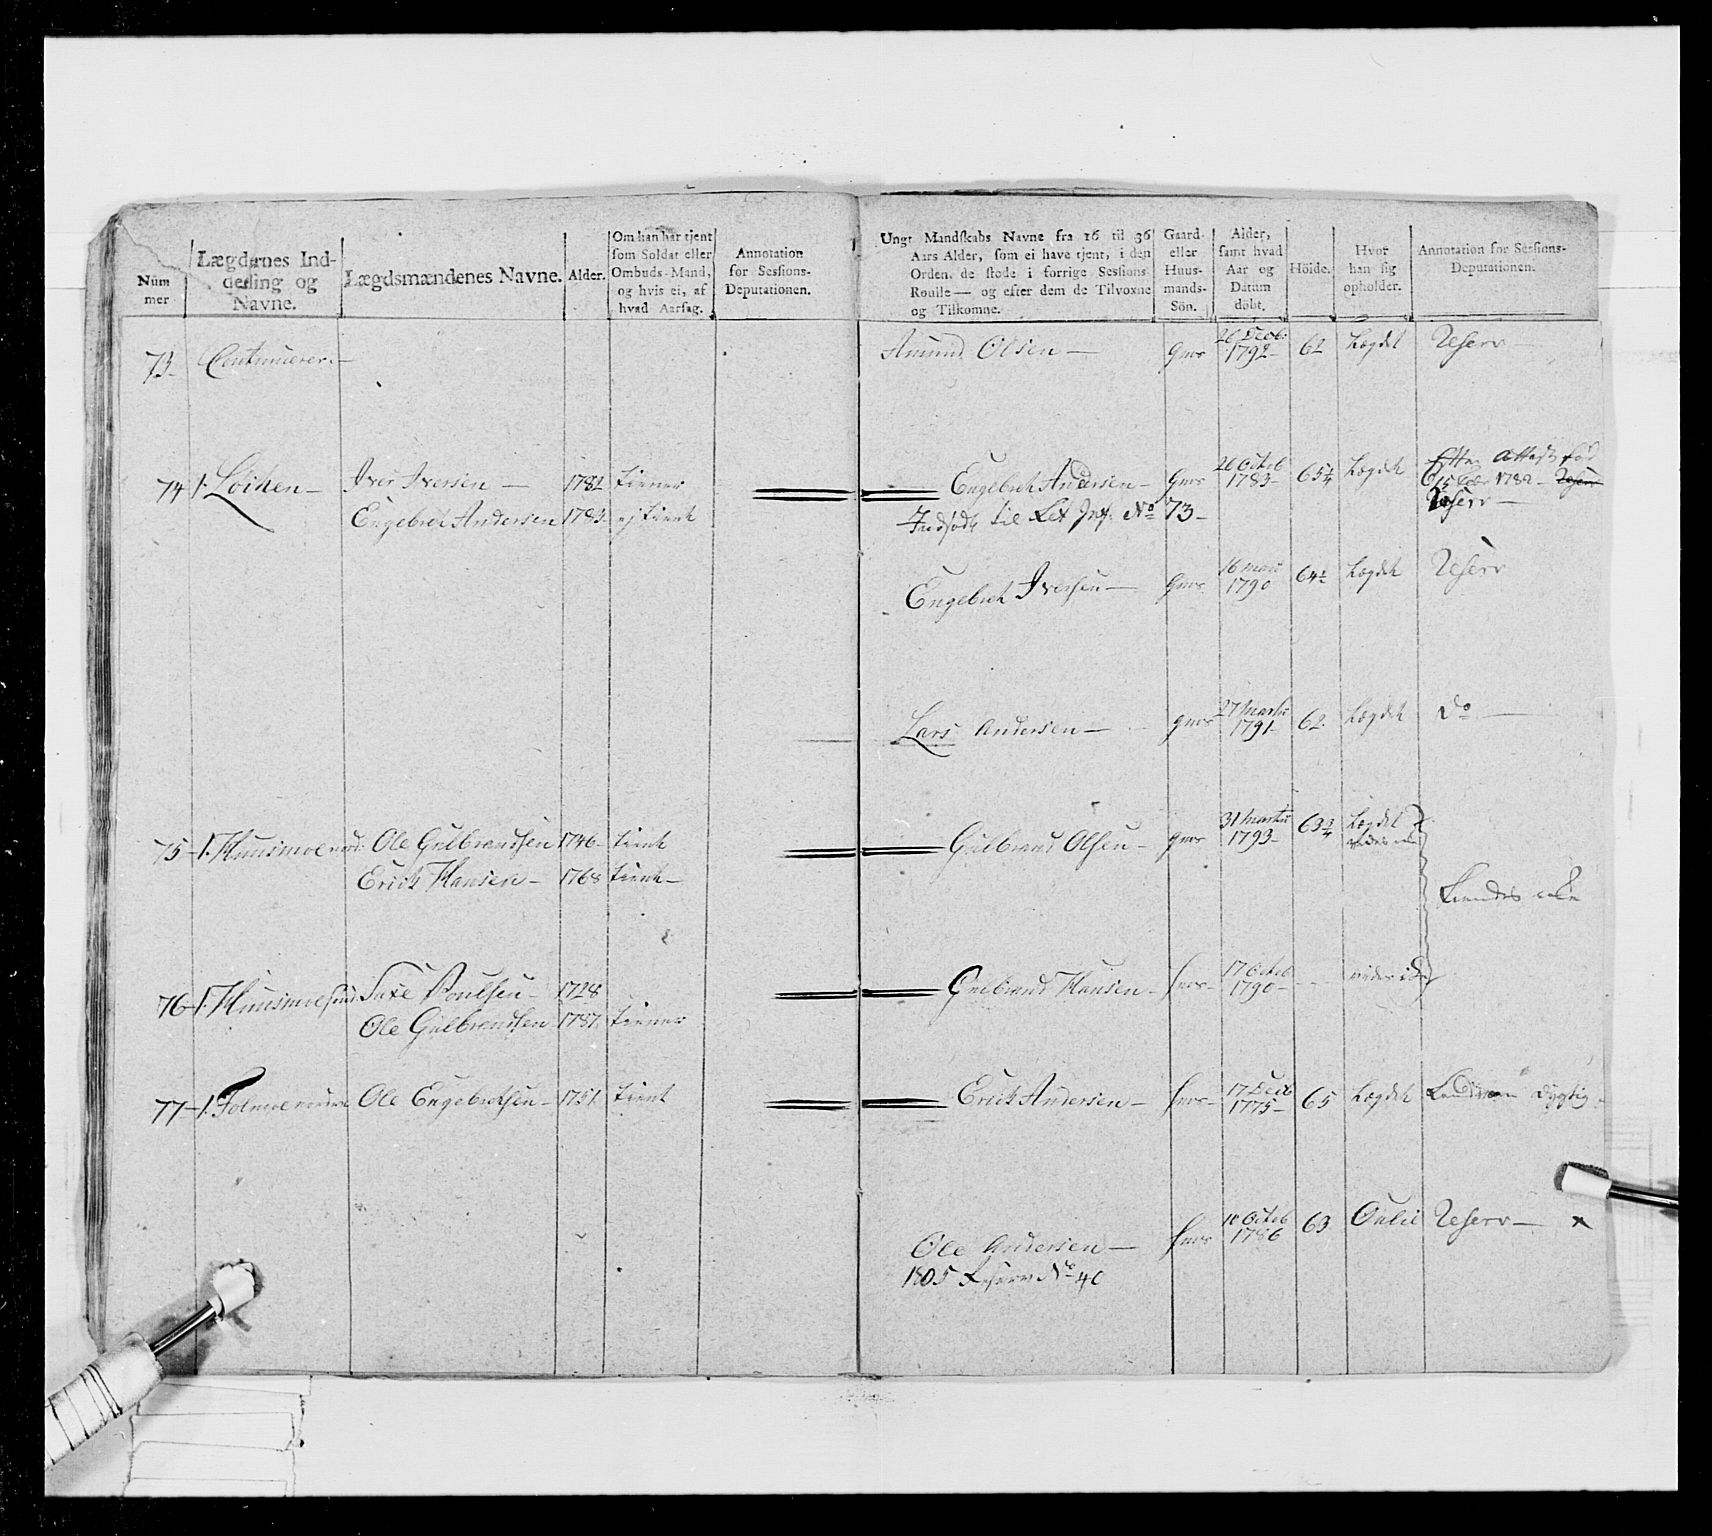 Num
mer
Lægdernes Ind-
deeling og
Navne.
Lægdsmændenes Navne.
Alder.
Om han har tjent
som Soldat eller
Ombuds-Mand,
og hvis ei, af
hvad Aarsag.
Annotation
for Sessions-
Deputationen.
Ungt Mandskabs Navne fra 16 til 36
Aars Alder, som ei have tjent, i den
Orden de stode i forrige Sessions
Roulle — og efter dem de Tilvoxne
og Tilkomne.
Gaard-
eller
Huus-
mands-
Sön.
Alder,
samt hvad
Aar og
Datum
döbt.
Höide.
Hvor
han sig
opholder.
Annotation for Sessions-
Deputationen.
73 Continuerer — Amund Olsen — Gms 26 Decb: 1792 62 Lægdet Reserv —
74 1. Löiten — Iver Iversen — 1782 tiener Engebret Andersen — Gms 26 Octob 1783 65 1/4 Lægdet Efter Attest fød
1782 — Reserv
Reserv —
Engebret Andersen 1783 ej tient Indsödt til Let Inf. No 73 —
Engebret Iversen — Gms 16 1790 64 1/2 Lægdet Reserv
Lars Andersen — gms 27 Martii 1791 62 Lægdet do —
75 1. Huusmoe Ole Gulbrandsen 1746 tient Gulbrand Olsen — gms 31 Martii 1793 63 3/4 Lægdet
Erich Hansen — 1768 tient — Kiendes
76 1. Huusmoe Poulsen — 1728 Gulbrand Hansen — hms — 17 Octob 1790 —
Ole Gulbrandsen 1787 tiener
77 1. Ole Engebretsen — 1751 tient Erich Andersen — hms — 17 Decb 1775 — 65 Lægdet Landværn dygtig
Ole Andersen — hms 1786 63 Reserv — x
1805 Reserv No 40